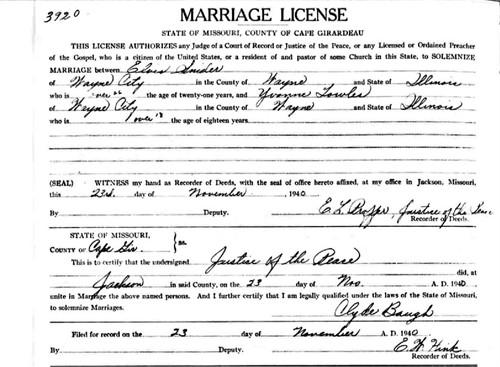 3920
MARRIAGE LICENSE
STATE OF MISSOURI, COUNTY OF CAPE GIRARDEAU
THIS LICENSE AUTHORIZES any Judge of a Court of Record or Justice of the Peace, or any Licensed or Ordained Preacher
of the Gospel, who is a citizen of the United States, or a resident of and pastor of some Church in this State, to SOLEMNIZE
MARRIAGE between Elvis Snider
of Wayne City in the County of Wayne and State of Illinois
who is over the age of twenty-one years, and Yvonne Fowler
of Wayne City in the County of Wayne and State of Illinois
who is over 18 the age of eighteen years.
(SEAL) WITNESS my hand as Recorder of Deeds, with the seal of office hereto affixed, at my office in Jackson, Missouri,
this 23rd day of November, 1940
By Deputy. E. L. Justice of the Peace
Recorder of Deeds.
STATE OF MISSOURI,
COUNTY OF Cape Gir. } ss.
This is to certify that the undersigned Justice of the Peace did, at
Jackson in said County, on the 23 day of Nov. A. D. 1940
unite in Marriage the above named persons. And I further certify that I am legally qualified under the laws of the State of Missouri,
to solemnize Marriages. Clyde Baugh
Filed for record on the 23 day of November A. D. 1940
By Deputy. E. W. Fink
Recorder of Deeds.